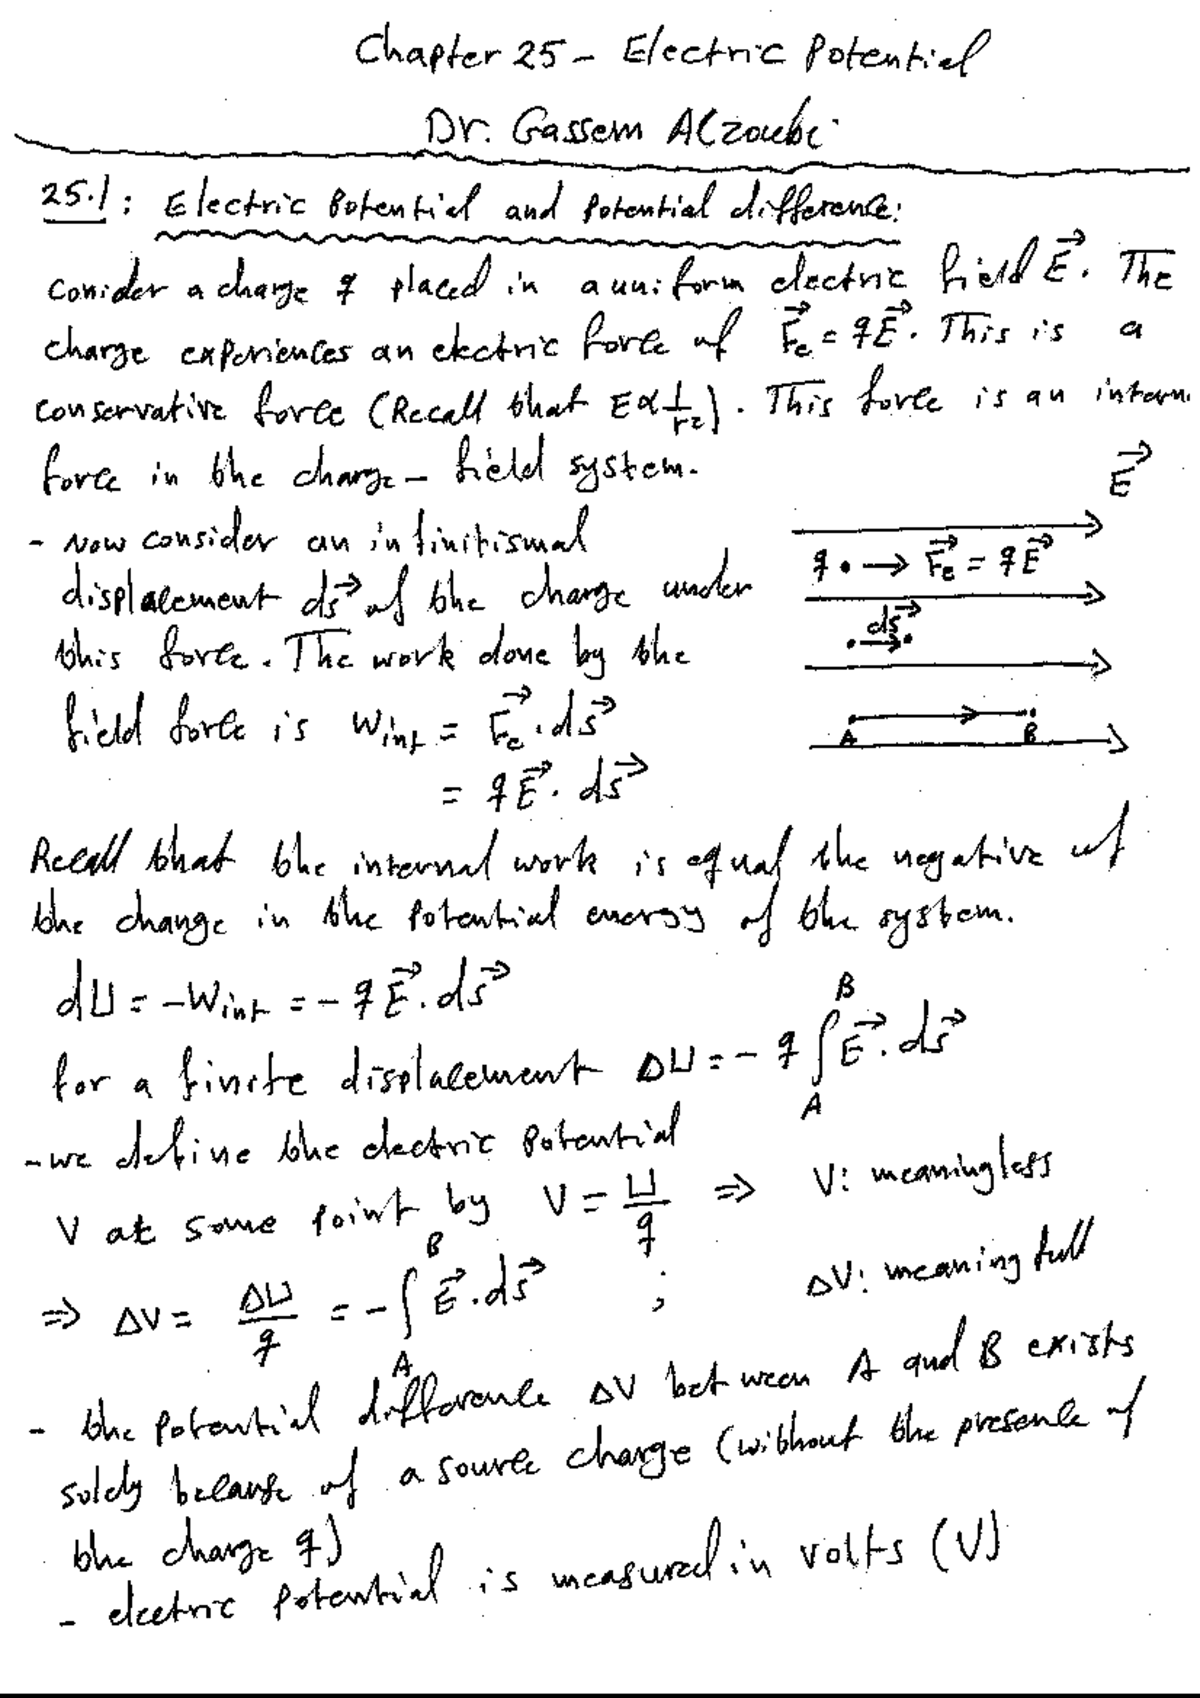 Chapter 25 - Electric Potential
Dr. Gassem Alzoubi
25.1: Electric Potential and Potential difference:
Conider a charge q placed in a uniform electric field E⃗. The
charge experiences an electric force of F⃗e = qE⃗. This is a
conservative force (Recall that E ∝ 1/r²). This force is an intern
force in the charge - field system.
E⃗
- Now consider an infinitismal
displacement ds⃗ of the charge under
this force. The work done by the
field force is Wint = F⃗e . ds⃗
= qE⃗ . ds⃗
q • → F⃗e = qE⃗
ds⃗
A B
Recall that the internal work is equal the negative of
the change in the potential energy of the system.
dU = -Wint = - qE⃗ . ds⃗
for a finite displacement ΔU = - q ∫_A^B E⃗ . ds⃗
- we define the electric potential
V at some point by V = U/q ⇒ V: meaningless
⇒ ΔV = ΔU/q = - ∫_A^B E⃗ . ds⃗ ; ΔV: meaningfull
- the potential difference ΔV between A and B exists
solely because of a source charge (without the presence of
the charge q)
- electric potential is measured in volts (V)